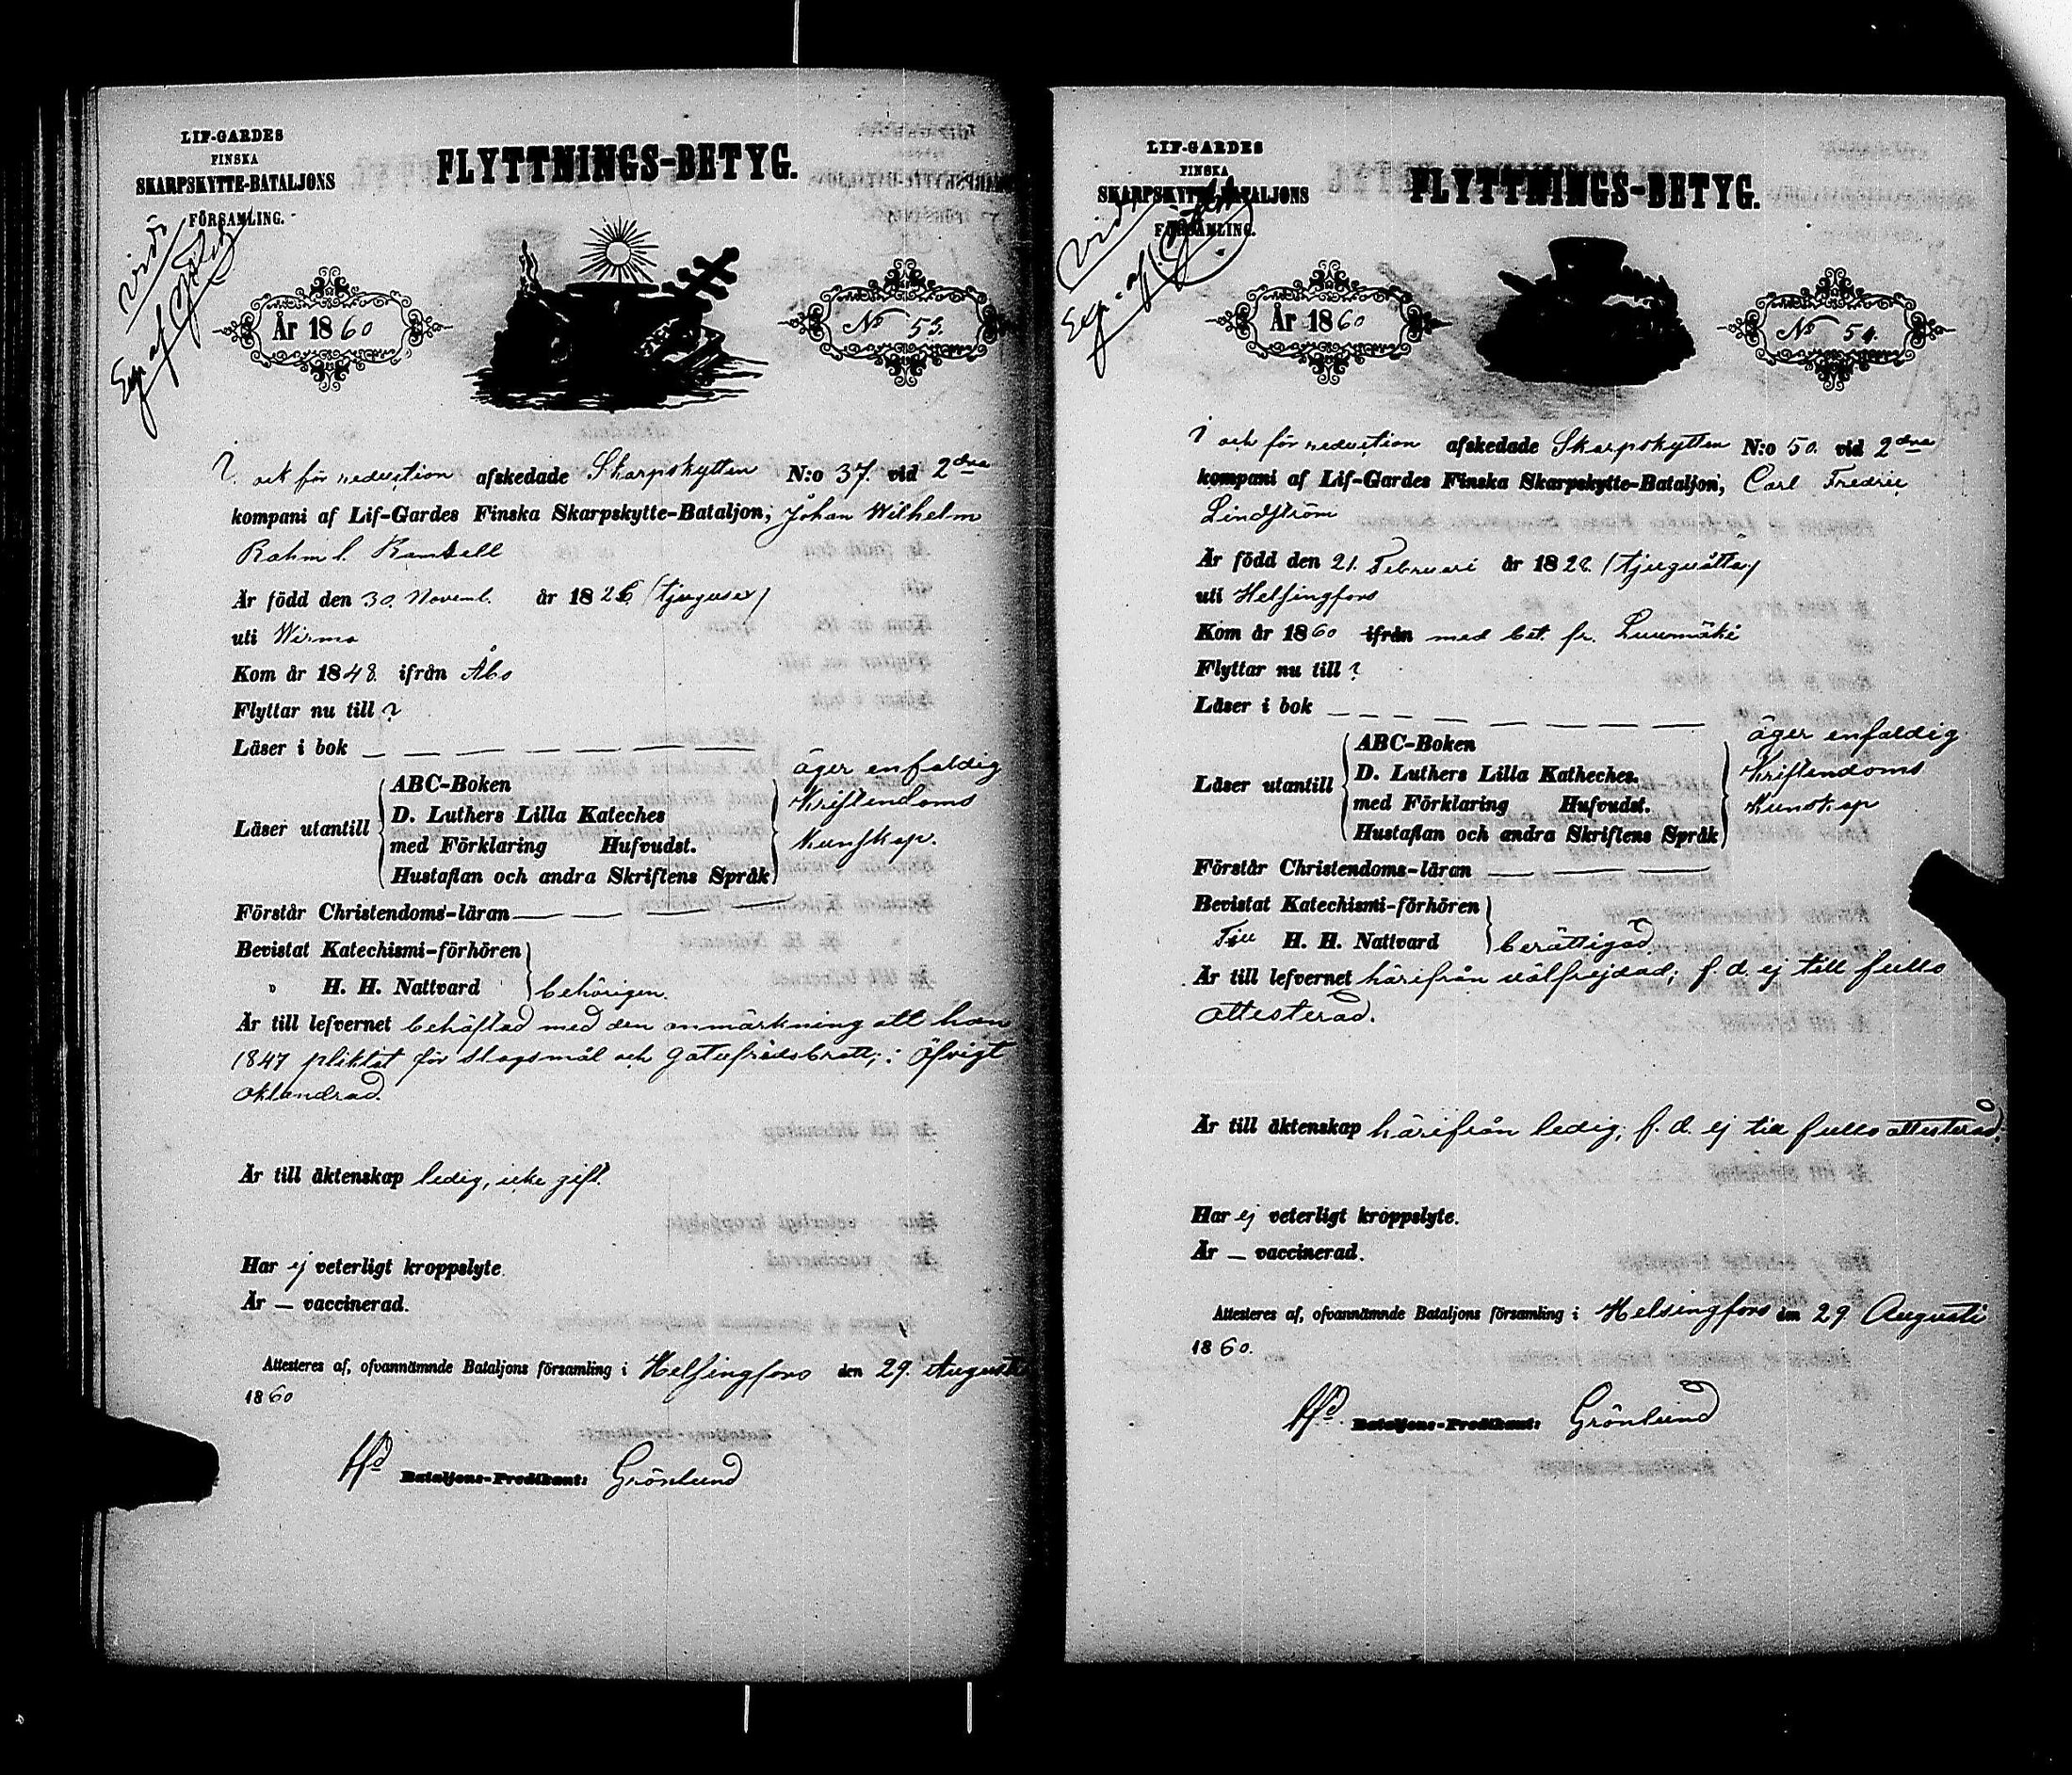 LIF-GARDES
FINSKA
SKARPSKYTTE-BATALJONS
FÖRSAMLING.
FLYTTNINGS-BETYG.
År 1860
No 53.
I och för reduction afskedade Skarpskytten N:o 37. vid 2dra
kompani af Lif-Gardes Finska Skarpskytte-Bataljon, Johan Wilhelm
Är född den 30. Novemb. år 1826 (tjugusex)
uti Wirmo
Kom år 1848. ifrån Åbo
Flyttar nu till ?
Läser i bok — — — — — — —
Läser utantill
ABC-Boken
D. Luthers Lilla Kateches
med Förklaring Hufvudst.
Hustaflan och andra Skriftens Språk
äger enfaldig
Kristendoms
Kunskap.
Förstår Christendoms-läran — — — —
Bevistat Katechismi-förhören
" H. H. Nattvard behörigen.
Är till lefvernet behäftad med den anmärkning att han
1847 pliktat för slagsmål och gatufridsbrott; i öfrigt
oklandrad.
Är till äktenskap ledig, icke gift.
Har ej veterligt kroppslyte.
Är — vaccinerad.
Attesteres af, ofvannämnde Bataljons församling i Helsingfors den 29. Augusti
1860
Bataljons-Predikant: Grönlund
LIF-GARDES
FINSKA
SKARPSKYTTE-BATALJONS
FÖRSAMLING.
FLYTTNINGS-BETYG.
År 1860
No 54.
I och för reduction afskedade Skarpskytten N:o 50. vid 2dra
kompani af Lif-Gardes Finska Skarpskytte-Bataljon, Carl Fredric
Lindström
Är född den 21. Februari år 1828. (tjuguåtta)
uti Helsingfors
Kom år 1860 ifrån med bet. fr. Luumäki
Flyttar nu till ?
Läser i bok — — — — — — — —
Läser utantill
ABC-Boken
D. Luthers Lilla Katheches.
med Förklaring Hufvudst.
Hustaflan och andra Skriftens Språk
äger enfaldig
Kristendoms
Kunskap
Förstår Christendoms-läran — — —
Bevistat Katechismi-förhören
Till H. H. Nattvard berättigad
Är till lefvernet härifrån välfrejdad; f. d. ej till fullo
attesterad.
Är till äktenskap härifrån ledig, f. d. ej till fullo attesterad.
Har ej veterligt kroppslyte.
Är — vaccinerad.
Attesteres af, ofvannämnde Bataljons församling i Helsingfors den 29. Augusti
1860.
Bataljons-Predikant: Grönlund